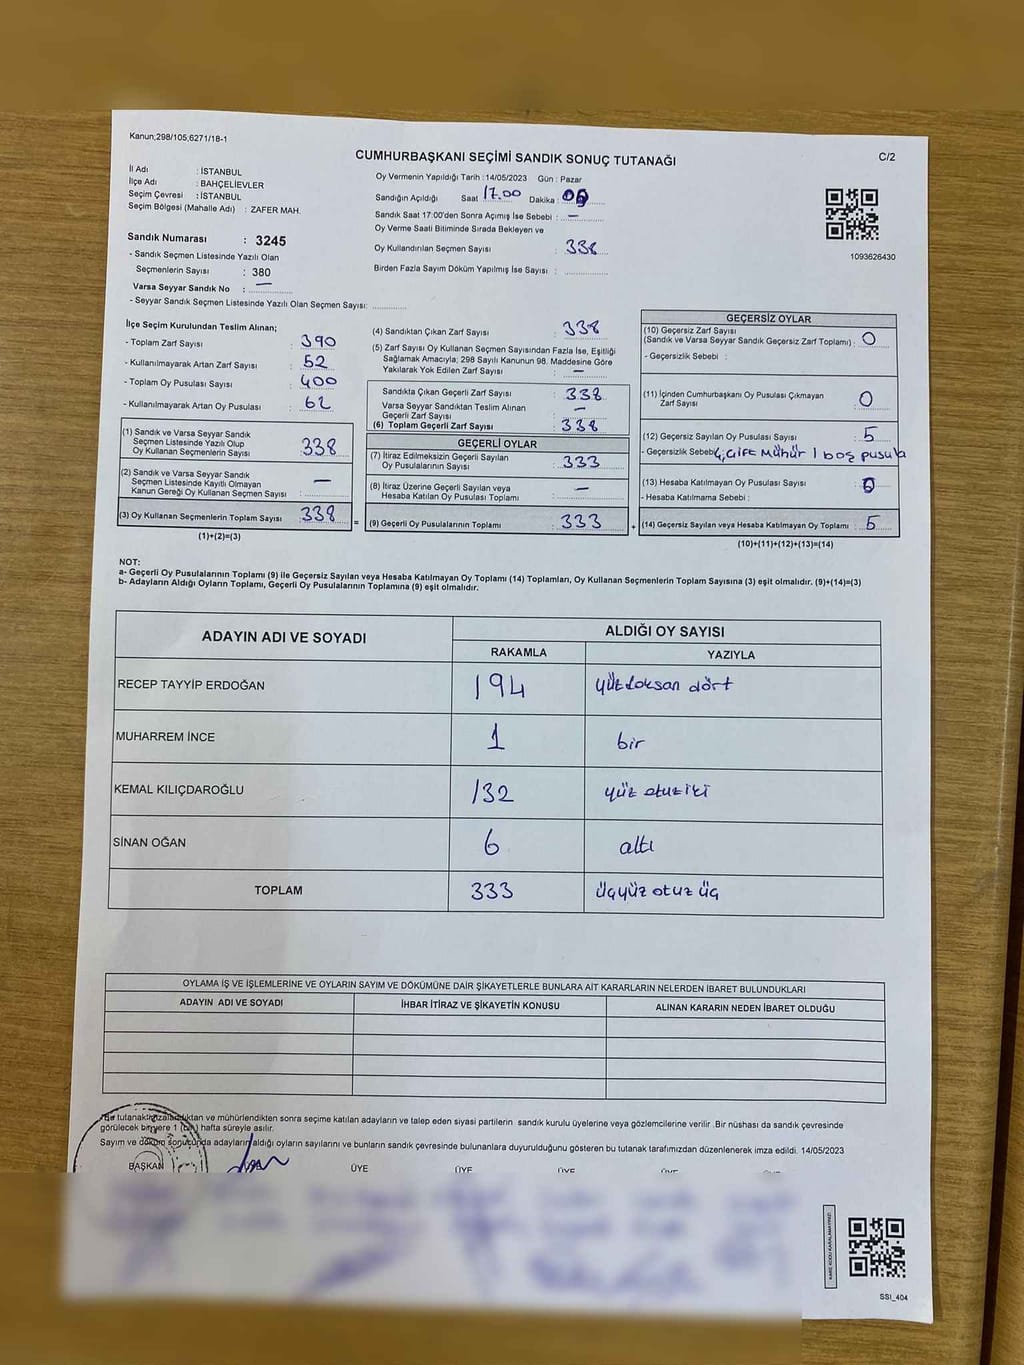 Kanun,298/105,6271/18-1
CUMHURBAŞKANI SEÇİMİ SANDIK SONUÇ TUTANAĞI
C/2
İl Adı : İSTANBUL
İlçe Adı : BAHÇELİEVLER
Seçim Çevresi : İSTANBUL
Seçim Bölgesi (Mahalle Adı) : ZAFER MAH.
Sandık Numarası : 3245
- Sandık Seçmen Listesinde Yazılı Olan
Seçmenlerin Sayısı : 380
Varsa Seyyar Sandık No : —
- Seyyar Sandık Seçmen Listesinde Yazılı Olan Seçmen Sayısı:
Oy Vermenin Yapıldığı Tarih : 14/05/2023 Gün : Pazar
Sandığın Açıldığı Saat 17.00 Dakika :
Sandık Saat 17:00'den Sonra Açımış İse Sebebi : —
Oy Verme Saati Bitiminde Sırada Bekleyen ve
Oy Kullandırılan Seçmen Sayısı : 338
Birden Fazla Sayım Döküm Yapılmış İse Sayısı :
1093626430
İlçe Seçim Kurulundan Teslim Alınan;
- Toplam Zarf Sayısı : 390
- Kullanılmayarak Artan Zarf Sayısı : 52
- Toplam Oy Pusulası Sayısı : 400
- Kullanılmayarak Artan Oy Pusulası : 62
(1) Sandık ve Varsa Seyyar Sandık
Seçmen Listesinde Yazılı Olup
Oy Kullanan Seçmenlerin Sayısı : 338
(2) Sandık ve Varsa Seyyar Sandık
Seçmen Listesinde Kayıtlı Olmayan
Kanun Gereği Oy Kullanan Seçmen Sayısı : —
(3) Oy Kullanan Seçmenlerin Toplam Sayısı : 338
(1)+(2)=(3)
=
(4) Sandıktan Çıkan Zarf Sayısı : 338
(5) Zarf Sayısı Oy Kullanan Seçmen Sayısından Fazla İse, Eşitliği
Sağlamak Amacıyla; 298 Sayılı Kanunun 98. Maddesine Göre
Yakılarak Yok Edilen Zarf Sayısı : —
Sandıkta Çıkan Geçerli Zarf Sayısı : 338
Varsa Seyyar Sandıktan Teslim Alınan
Geçerli Zarf Sayısı : —
(6) Toplam Geçerli Zarf Sayısı : 338
GEÇERLİ OYLAR
(7) İtiraz Edilmeksizin Geçerli Sayılan
Oy Pusulalarının Sayısı : 333
(8) İtiraz Üzerine Geçerli Sayılan veya
Hesaba Katılan Oy Pusulası Toplamı : —
(9) Geçerli Oy Pusulalarının Toplamı : 333
+
GEÇERSİZ OYLAR
(10) Geçersiz Zarf Sayısı
(Sandık ve Varsa Seyyar Sandık Geçersiz Zarf Toplamı) : 0
- Geçersizlik Sebebi :
(11) İçinden Cumhurbaşkanı Oy Pusulası Çıkmayan
Zarf Sayısı : 0
(12) Geçersiz Sayılan Oy Pusulası Sayısı : 5
- Geçersizlik Sebebi 4, çift mühür 1 boş pusula
(13) Hesaba Katılmayan Oy Pusulası Sayısı : 0
- Hesaba Katılmama Sebebi :
(14) Geçersiz Sayılan veya Hesaba Katılmayan Oy Toplamı : 5
(10)+(11)+(12)+(13)=(14)
NOT:
a- Geçerli Oy Pusulalarının Toplamı (9) ile Geçersiz Sayılan veya Hesaba Katılmayan Oy Toplamı (14) Toplamları, Oy Kullanan Seçmenlerin Toplam Sayısına (3) eşit olmalıdır. (9)+(14)=(3)
b- Adayların Aldığı Oyların Toplamı, Geçerli Oy Pusulalarının Toplamına (9) eşit olmalıdır.
ADAYIN ADI VE SOYADI
ALDIĞI OY SAYISI
RAKAMLA YAZIYLA
RECEP TAYYİP ERDOĞAN 194 yüzdoksan dört
MUHARREM İNCE 1 bir
KEMAL KILIÇDAROĞLU 132 yüz otuziki
SİNAN OĞAN 6 altı
TOPLAM 333 üçyüz otuz üç
OYLAMA İŞ VE İŞLEMLERİNE VE OYLARIN SAYIM VE DÖKÜMÜNE DAİR ŞİKAYETLERLE BUNLARA AİT KARARLARIN NELERDEN İBARET BULUNDUKLARI
ADAYIN ADI VE SOYADI İHBAR İTİRAZ VE ŞİKAYETİN KONUSU ALINAN KARARIN NEDEN İBARET OLDUĞU
İşbu tutanak imzalandıktan ve mühürlendikten sonra seçime katılan adayların ve talep eden siyasi partilerin sandık kurulu üyelerine veya gözlemcilerine verilir. Bir nüshası da sandık çevresinde
görülecek bir yere 1 (bir) hafta süreyle asılır.
Sayım ve döküm sonucunda adayların aldığı oyların sayılarını ve bunların sandık çevresinde bulunanlara duyurulduğunu gösteren bu tutanak tarafımızdan düzenlenerek imza edildi. 14/05/2023
BAŞKAN ÜYE ÜYE ÜYE ÜYE
KARE KODU KARALAMAYINIZ!
SSI_404